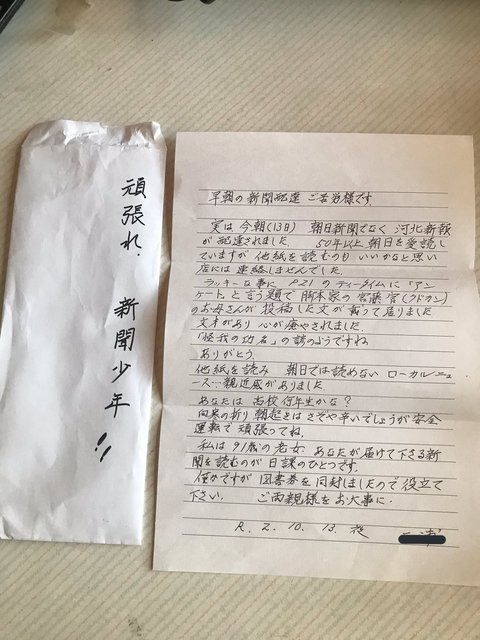 頑張れ.
新聞少年!!
早朝の新聞配達 ご苦労様です
実は今朝(13日) 朝日新聞でなく 河北新報
が配達されました. 50年以上 朝日を愛読し
ていますが 他紙を読むのも いいかなと思い
店には 連絡しませんでした.
ラッキーな事に P21 の ティータイムに「アン
ケート」と言う題で 脚本家の 宮藤 官(クドカン)
のお母さんが 投稿した文が 載って居りました
文才があり 心が癒やされました.
「怪我の功名」の諺のようですね.
ありがとう.
他紙を読み 朝日では読めない ローカルニュ
ース…親近感がありました.
あなたは 高校 何年生かな?
向寒の折り 朝起きは さぞや辛いでしょうが 安全
運転で 頑張ってね.
私は 91歳の老女. あなたが届けて下さる新
聞を読むのが 日課のひとつです.
僅かですが 図書券を同封しましたので 役立て
下さい. ご両親様をお大事に.
R. 2. 10. 13. 夜